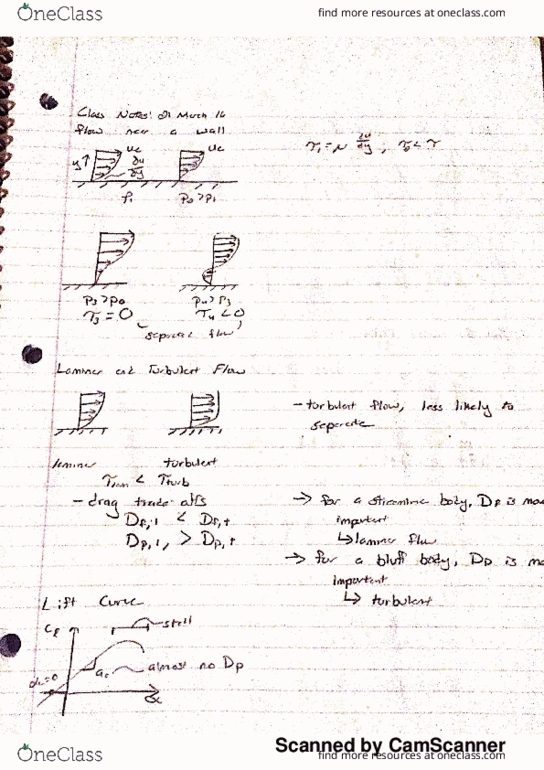 OneClass
find more resources at oneclass.com
Class Notes: March 16
flow near a wall
y↑ ue ∂u/∂y ue
τ₁ = μ ∂u/∂y ; τ₂ < τ
P₁ P₂ > P₁
P₃ > P₂ P₄ > P₃
τ₃ = 0 τ₄ < 0
separate flow
Laminar and Turbulent Flow
- turbulent flow, less likely to
separate
laminar turbulent
τlam < τturb
- drag trade offs
Df,l < Df,t
Dp,l > Dp,t
→ for a streamline body, Df is mo
important
↳ laminar flow
→ for a bluff body, Dp is mo
important
↳ turbulent
Lift Curve
Cl stall
almost no Dp
α
OneClass
Scanned by CamScanner
find more resources at oneclass.com